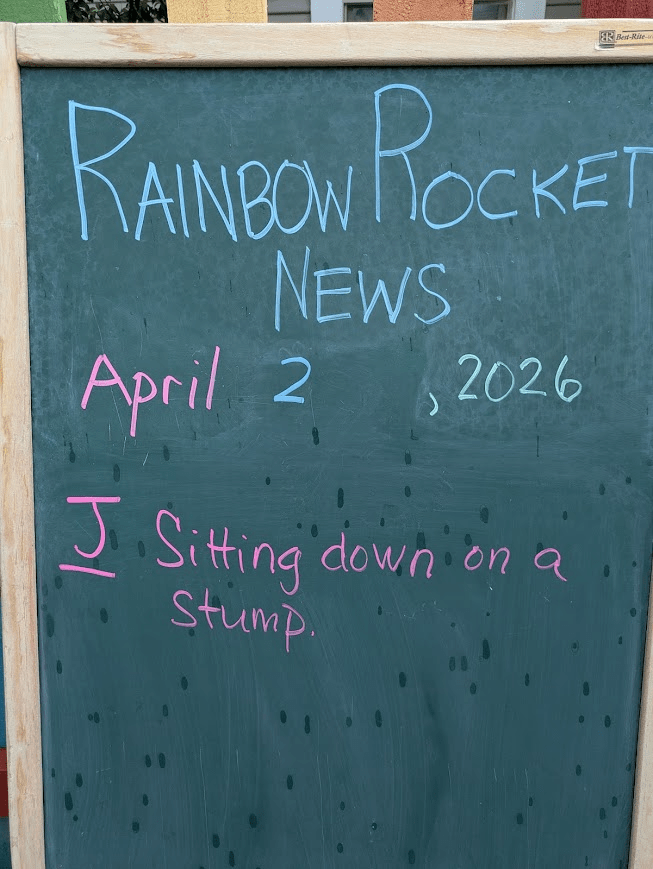 Best-Rite
RAINBOW ROCKET
NEWS
April 2 , 2026
J Sitting down on a
stump.